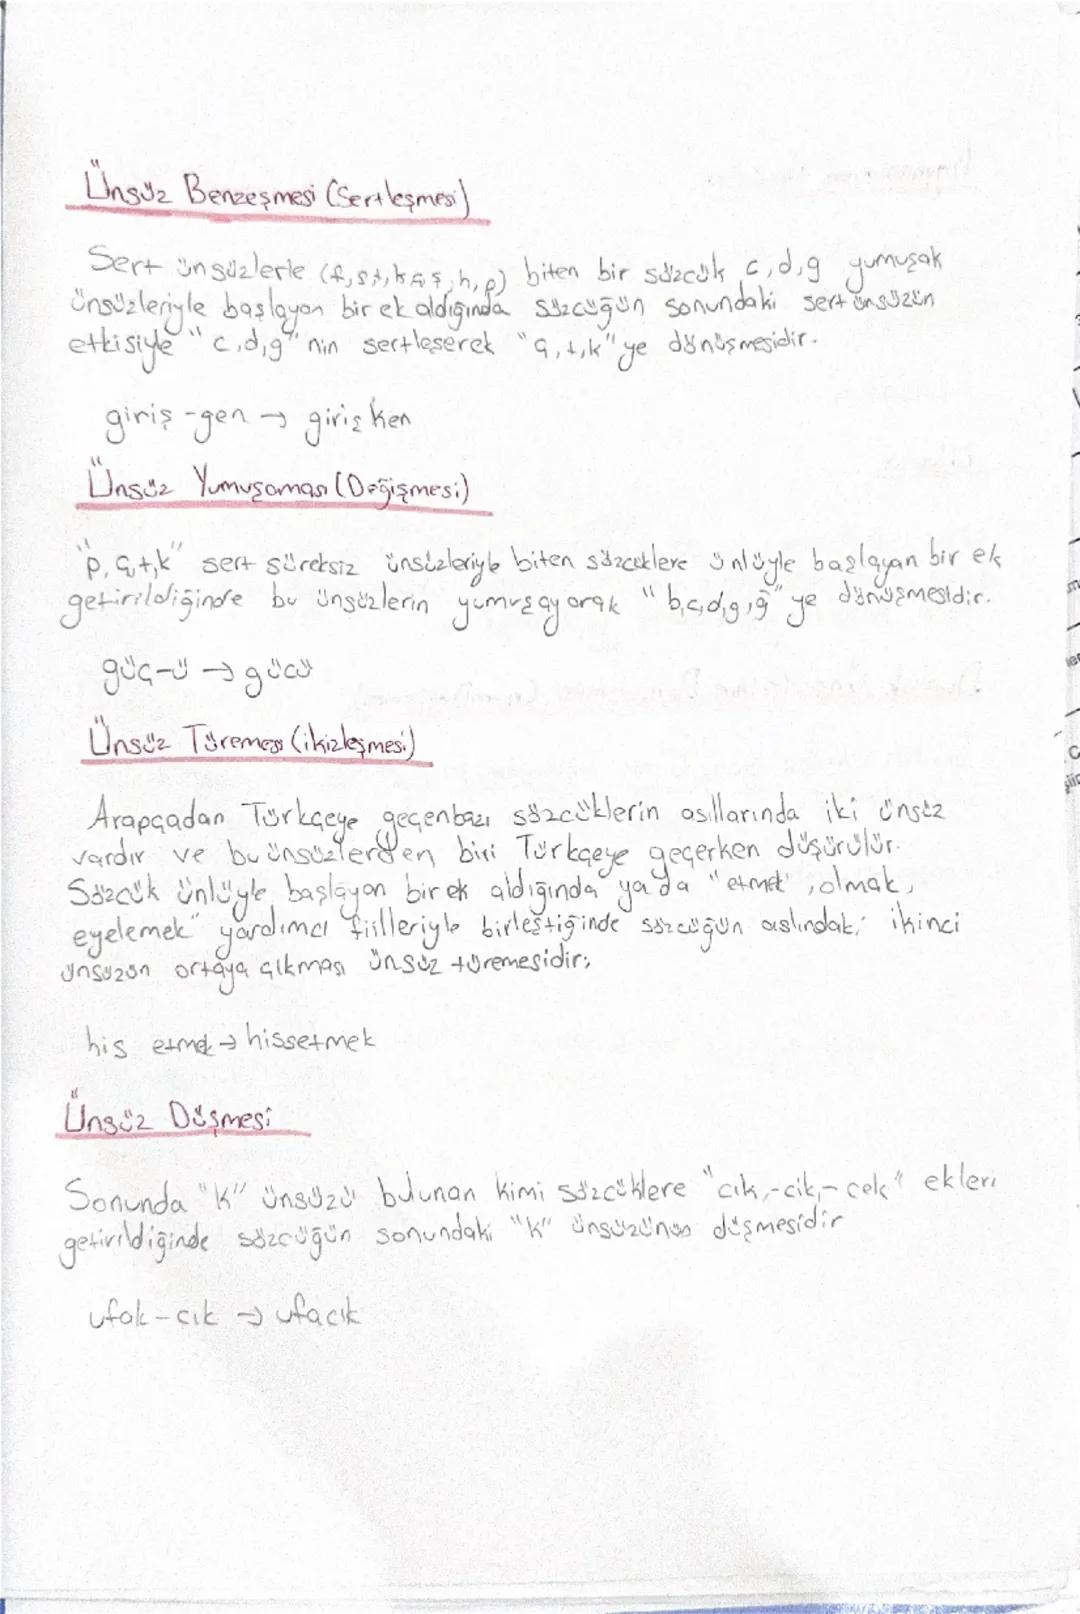 Ünsüz Benzeşmesi (Sertleşmesi)
Sert ünsüzlerle (f,s,t,k,ç,ş,h,p) biten bir sözcük c,d,g yumuşak
ünsüzleriyle başlayan bir ek aldığında sözcüğün sonundaki sert ünsüzün
etkisiyle "c,d,g" nin sertleşerek "ç,t,k" ye dönüşmesidir.
giriş-gen → girişken
Ünsüz Yumuşaması (Değişmesi)
"p,ç,t,k" sert süreksiz ünsüzleriyle biten sözcüklere ünlüyle başlayan bir ek
getirildiğinde bu ünsüzlerin yumuşayarak "b,c,d,g,ğ" ye dönüşmesidir.
güç-ü → gücü
Ünsüz Türemesi (ikizleşmesi)
Arapçadan Türkçeye geçen bazı sözcüklerin asıllarında iki ünsüz
vardır ve bu ünsüzlerden biri Türkçeye geçerken düşürülür.
Sözcük ünlüyle başlayan bir ek aldığında ya da "etmek", olmak,
eyelemek" yardımcı fiilleriyle birleştiğinde sözcüğün aslındaki ikinci
ünsüzün ortaya çıkması ünsüz türemesidir;
his etmek → hissetmek
Ünsüz Düşmesi
Sonunda "K" ünsüzü bulunan kimi sözcüklere "cık,-cik,-cek" ekleri
getirildiğinde sözcüğün sonundaki "K" ünsüzünün düşmesidir
ufak-cık → ufacık